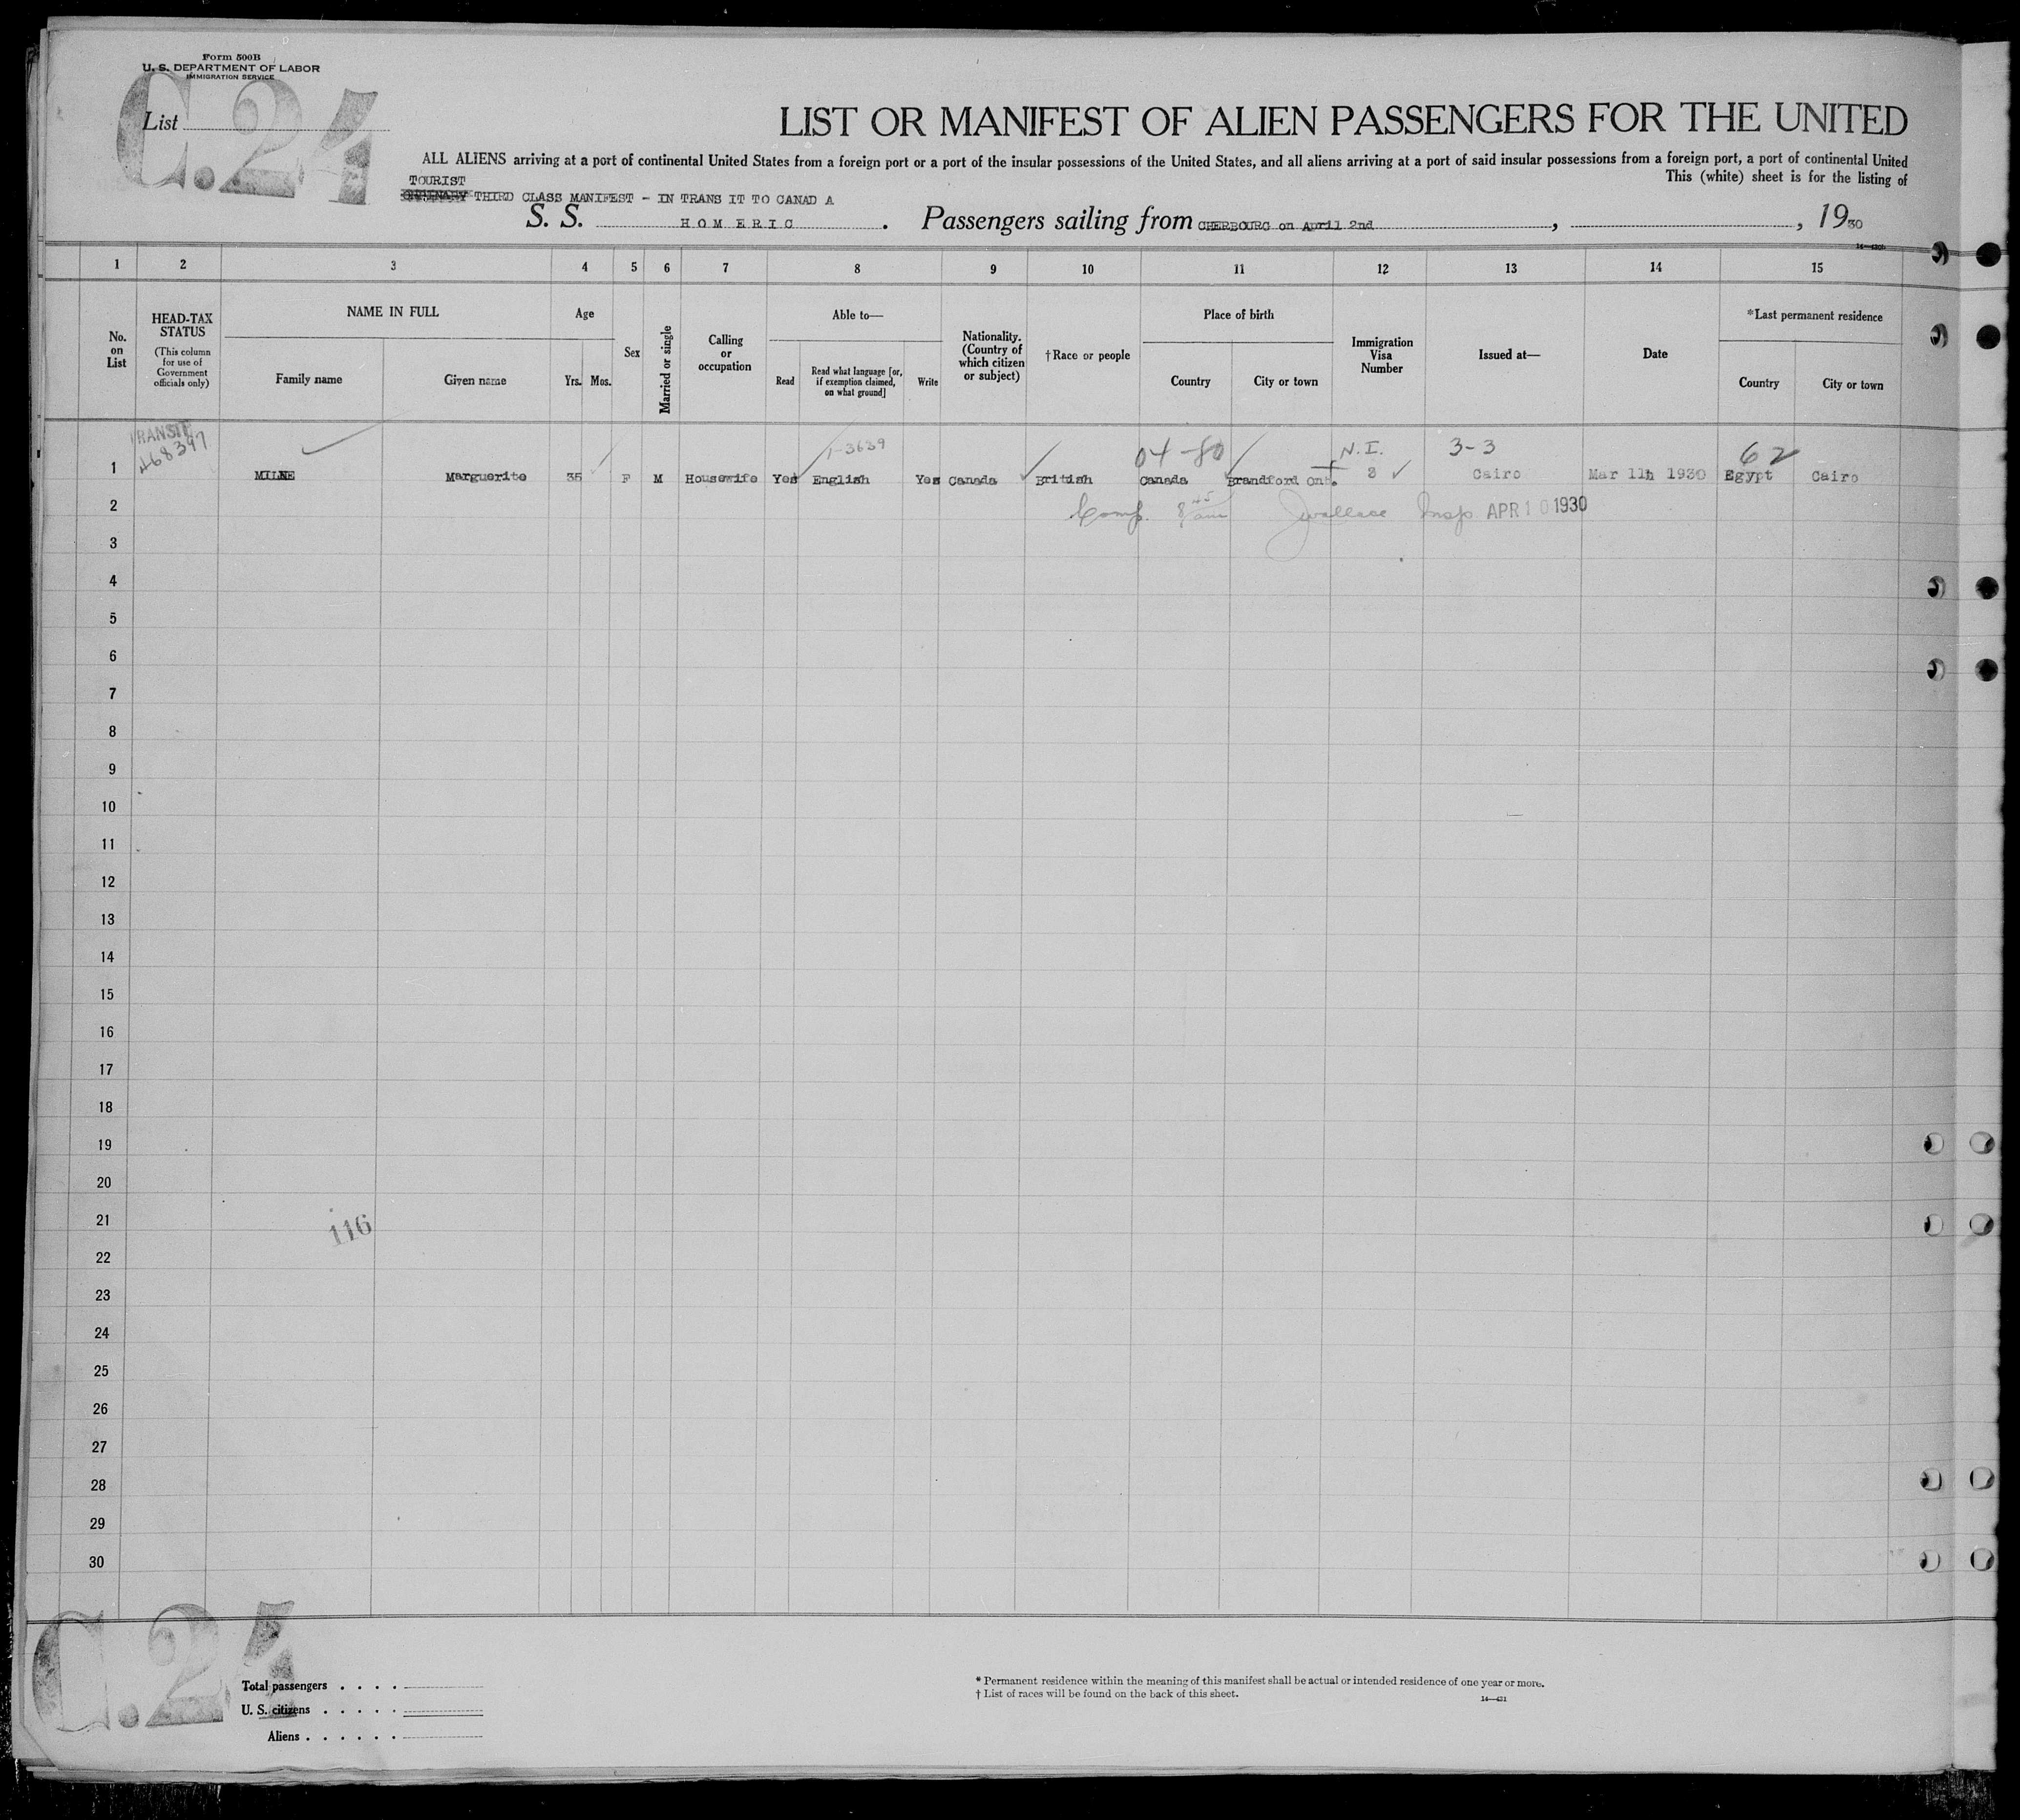 Form 500B
U. S. DEPARTMENT OF LABOR
IMMIGRATION SERVICE
C.24
List
LIST OR MANIFEST OF ALIEN PASSENGERS FOR THE UNITED
ALL ALIENS arriving at a port of continental United States from a foreign port or a port of the insular possessions of the United States, and all aliens arriving at a port of said insular possessions from a foreign port, a port of continental United
This (white) sheet is for the listing of
TOURIST
ORDINARY THIRD CLASS MANIFEST - IN TRANS IT TO CANAD A
S. S. HOMERIC . Passengers sailing from CHERBOURG on April 2nd , , 19 30
1 2 3 4 5 6 7 8 9 10 11 12 13 14 15
No. on List
HEAD-TAX STATUS
(This column for use of Government officials only)
NAME IN FULL
Family name Given name
Age
Yrs. Mos.
Sex
Married or single
Calling or occupation
Able to—
Read
Read what language [or, if exemption claimed, on what ground]
Write
Nationality. (Country of which citizen or subject)
†Race or people
Place of birth
Country City or town
Immigration Visa Number
Issued at—
Date
*Last permanent residence
Country City or town
TRANSIT 468397 1-3639 04-80 N.I. 3-3 62
1 MILNE Marguerite 35 F M Housewife Yes English Yes Canada British Canada Brandford Ont. 3 Cairo Mar 11h 1930 Egypt Cairo
2 Comp. 8 45 am J Wallace Insp APR 10 1930
3
4
5
6
7
8
9
10
11
12
13
14
15
16
17
18
19
20
21
116
22
23
24
25
26
27
28
29
30
C.24
Total passengers . . . .
U. S. citizens . . . . .
Aliens . . . . . .
* Permanent residence within the meaning of this manifest shall be actual or intended residence of one year or more.
† List of races will be found on the back of this sheet.
14—421